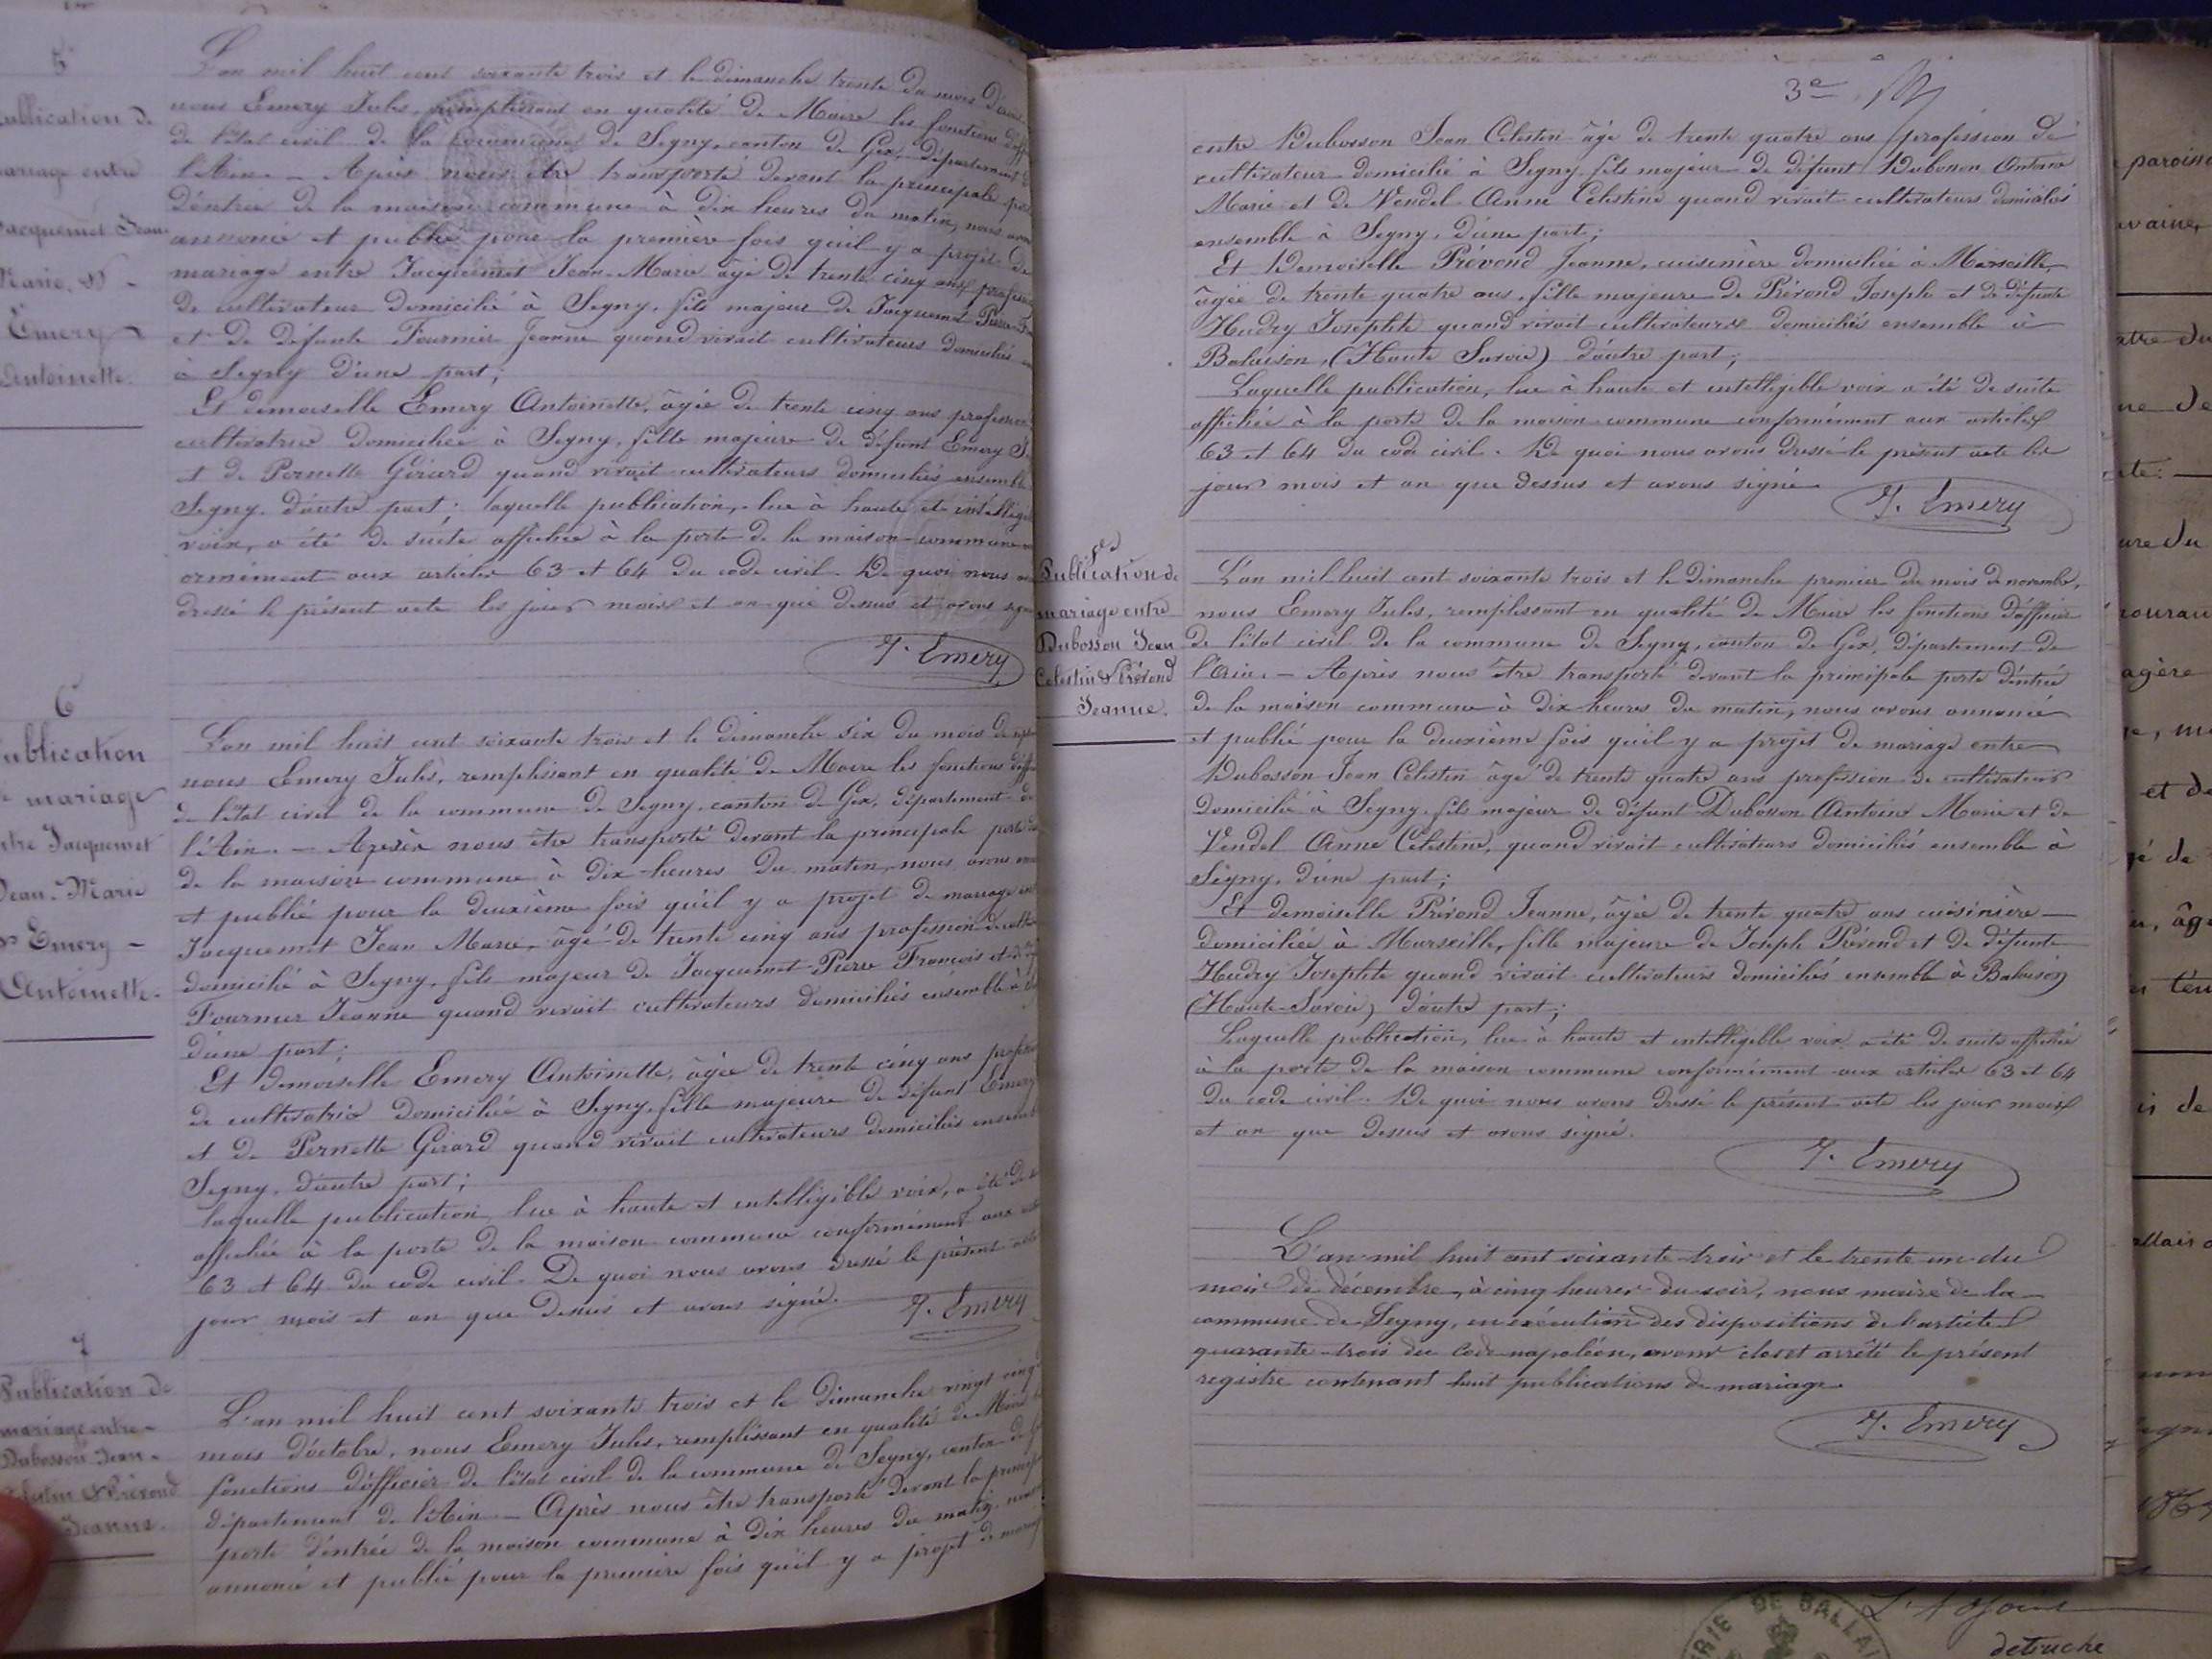 5
Publication de
mariage entre
Jacquemet Jean
Marie, &
Emery
Antoinette.
L'an mil huit cent soixante trois et le dimanche trente du mois d'août
nous Emery Jules, remplissant en qualité de Maire les fonctions
de l'état civil de la commune de Segny, canton de Gex, département
l'Ain. — Après nous être transporté devant la principale
d'entrée de la maison commune à dix heures du matin, nous
annoncé et publié pour la première fois qu'il y a projet de
mariage entre Jacquemet Jean-Marie âgé de trente cinq ans profession
de cultivateur domicilié à Segny, fils majeur de Jacquemet Pierre
et de défunte Fournier Jeanne quand vivait cultivateurs domiciliés
à Segny d'une part;
Et demoiselle Emery Antoinette, âgée de trente cinq ans profession
cultivatrice domiciliée à Segny, fille majeure de défunt Emery
et de Pernette Girard quand vivait cultivateurs domiciliés ensemble
Segny d'autre part; laquelle publication, lue à haute et
voix, a été de suite affichée à la porte de la maison commune
ormément aux articles 63 et 64 du code civil. De quoi nous
dressé le présent acte les jour mois et an que dessus et avons
J. Emery
6
Publication
de mariage
entre Jacquemet
Jean-Marie
& Emery
Antoinette.
L'an mil huit cent soixante trois et le dimanche six du mois de
nous Emery Jules, remplissant en qualité de Maire les fonctions
de l'état civil de la commune de Segny, canton de Gex, département de
l'Ain. — Après nous être transporté devant la principale porte
de la maison commune à dix heures du matin, nous avons
et publié pour la deuxième fois qu'il y a projet de mariage
Jacquemet Jean Marie, âgé de trente cinq ans profession de
domicilié à Segny, fils majeur de Jacquemet Pierre François et de
Fournier Jeanne quand vivait cultivateurs domiciliés ensemble à
d'une part;
Et demoiselle Emery Antoinette, âgée de trente cinq ans
de cultivatrice domiciliée à Segny, fille majeure de défunt Emery
et de Pernette Girard quand vivait cultivateurs domiciliés
Segny, d'autre part;
laquelle publication, lue à haute et intelligible voix, a été de
affichée à la porte de la maison commune conformément aux
63 et 64 du code civil. De quoi nous avons dressé le présent
jour mois et an que dessus et avons signé.
J. Emery
7
Publication de
mariage entre
Dubosson Jean
Célestin & Prévond
Jeanne.
L'an mil huit cent soixante trois et le dimanche vingt cinq
mois d'octobre, nous Emery Jules, remplissant en qualité de Maire
fonctions d'officier de l'état civil de la commune de Segny, canton de
département de l'Ain. — Après nous être transporté devant la
porte d'entrée de la maison commune à dix heures du matin,
annoncé et publié pour la première fois qu'il y a projet de
3e
entre Dubosson Jean Célestin âgé de trente quatre ans profession de
cultivateur domicilié à Segny fils majeur de défunt Dubosson Antoine
Marie et de Vendel Anne Célestine quand vivait cultivateurs domiciliés
ensemble à Segny, d'une part;
Et Demoiselle Prévond Jeanne, cuisinière domiciliée à Marseille,
âgée de trente quatre ans, fille majeure de Prévond Joseph et de défunte
Hudry Josephte quand vivait cultivateurs domiciliés ensemble à
Balaison, (Haute Savoie) d'autre part;
Laquelle publication, lue à haute et intelligible voix a été de suite
affichée à la porte de la maison commune conformément aux articles
63 et 64 du code civil. De quoi nous avons dressé le présent acte les
jour mois et an que dessus et avons signé
J. Emery
8
Publication de
mariage entre
Dubosson Jean
Célestin & Prévond
Jeanne.
L'an mil huit cent soixante trois et le dimanche premier du mois de novembre,
nous Emery Jules, remplissant en qualité de Maire les fonctions d'officier
de l'état civil de la commune de Segny, canton de Gex, département de
l'Ain. — Après nous être transporté devant la principale porte d'entrée
de la maison commune à dix heures du matin, nous avons annoncé
et publié pour la deuxième fois qu'il y a projet de mariage entre
Dubosson Jean Célestin âgé de trente quatre ans profession de cultivateur
domicilié à Segny, fils majeur de défunt Dubosson Antoine Marie et de
Vendel Anne Célestine, quand vivait cultivateurs domiciliés ensemble à
Segny, d'une part;
Et demoiselle Prévond Jeanne, âgée de trente quatre ans cuisinière
domiciliée à Marseille, fille majeure de Joseph Prévond et de défunte
Hudry Josephte quand vivait cultivateurs domiciliés ensemble à Balaison
(Haute-Savoie) d'autre part;
Laquelle publication, lue à haute et intelligible voix a été de suite affichée
à la porte de la maison commune conformément aux articles 63 et 64
du code civil. De quoi nous avons dressé le présent acte les jour mois
et an que dessus et avons signé.
J. Emery
L'an mil huit cent soixante-trois et le trente un du
mois de décembre, à cinq heures du soir, nous maire de la
commune de Segny, en exécution des dispositions de l'article
quarante-trois du Code napoléon, avons clos et arrêté le présent
registre contenant huit publications de mariage.
J. Emery
L'Adjoint
detruche